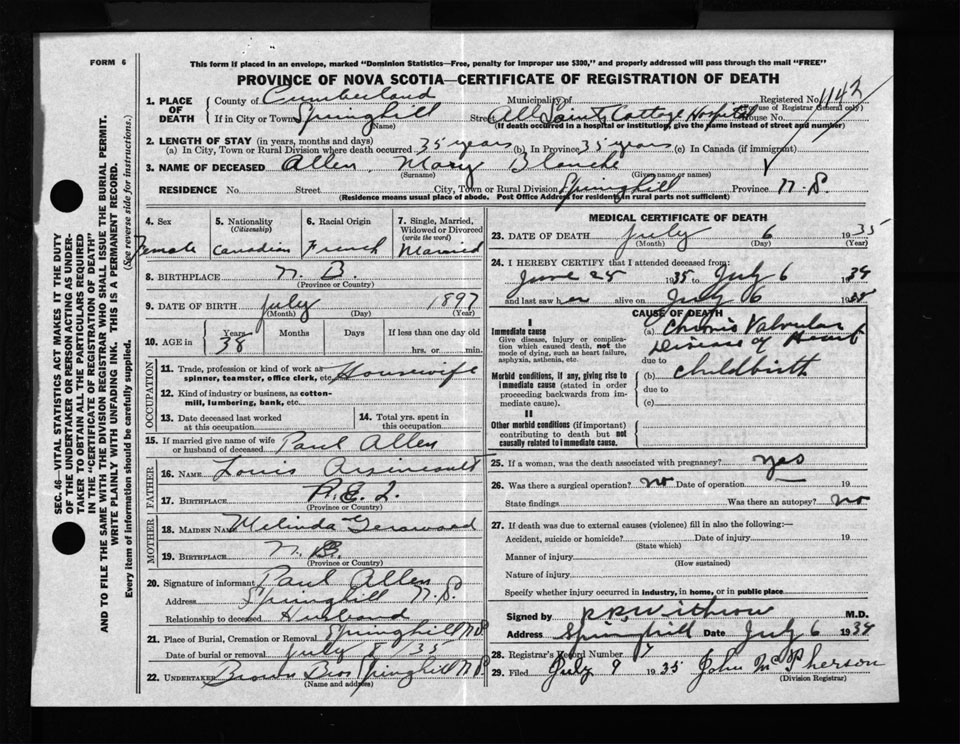 FORM 6
This form if placed in an envelope, marked "Dominion Statistics—Free, penalty for improper use $300," and properly addressed will pass through the mail "FREE"
PROVINCE OF NOVA SCOTIA—CERTIFICATE OF REGISTRATION OF DEATH
1. PLACE OF DEATH County of Cumberland Municipality of Registered No. 1142
(For use of Registrar General only)
If in City or Town Springhill Street All Saints Cottage Hospital House No.
(Name) (If death occurred in a hospital or institution, give the name instead of street and number)
2. LENGTH OF STAY (in years, months and days)
(a) In City, Town or Rural Division where death occurred 35 years (b) In Province 35 years (c) In Canada (if immigrant)
3. NAME OF DECEASED Allen, Mary Blanche
(Surname) (Given name or names)
RESIDENCE No. Street City, Town or Rural Division Springhill Province N.S.
(Residence means usual place of abode. Post Office Address for residents in rural parts not sufficient)
4. Sex 5. Nationality (Citizenship) 6. Racial Origin 7. Single, Married, Widowed or Divorced (write the word)
Female Canadian French Married
8. BIRTHPLACE N.B.
(Province or Country)
9. DATE OF BIRTH July 1897
(Month) (Day) (Year)
10. AGE in Years Months Days If less than one day old
38 hrs. or min.
OCCUPATION
11. Trade, profession or kind of work as spinner, teamster, office clerk, etc. Housewife
12. Kind of industry or business, as cotton-mill, lumbering, bank, etc.
13. Date deceased last worked at this occupation
14. Total yrs. spent in this occupation
15. If married give name of wife or husband of deceased Paul Allen
FATHER
16. NAME Louis Arsineault
17. BIRTHPLACE P.E.I.
(Province or Country)
MOTHER
18. MAIDEN NAME Melinda
19. BIRTHPLACE N.B.
(Province or Country)
20. Signature of informant Paul Allen
Address Springhill N.S.
Relationship to deceased Husband
21. Place of Burial, Cremation or Removal Springhill N.S.
Date of burial or removal July 8 35
22. UNDERTAKER Brown Bros Springhill N.S.
(Name and address)
MEDICAL CERTIFICATE OF DEATH
23. DATE OF DEATH July 6 1935
(Month) (Day) (Year)
24. I HEREBY CERTIFY that I attended deceased from:
June 25 1935 to July 6 1934
and last saw her alive on July 6 19
CAUSE OF DEATH
I
Immediate cause
Give disease, injury or complication which caused death, not the mode of dying, such as heart failure, asphyxia, asthenia, etc.
(a) Chronic Valvular
Disease of Heart
due to
Morbid conditions, if any, giving rise to immediate cause (stated in order proceeding backwards from immediate cause).
(b) childbirth
due to
(c)
II
Other morbid conditions (if important) contributing to death but not causally related to immediate cause.
25. If a woman, was the death associated with pregnancy? yes
26. Was there a surgical operation? No Date of operation 19
State findings Was there an autopsy? No
27. If death was due to external causes (violence) fill in also the following:—
Accident, suicide or homicide? Date of injury 19
(State which)
Manner of injury
(How sustained)
Nature of injury
Specify whether injury occurred in industry, in home, or in public place
Signed by R R Withrow M.D.
Address Springhill Date July 6 1934
28. Registrar's Record Number
29. Filed July 9 1935 John McPherson
(Division Registrar)
SEC. 46—VITAL STATISTICS ACT MAKES IT THE DUTY
OF THE UNDERTAKER OR PERSON ACTING AS UNDER-
TAKER TO OBTAIN ALL THE PARTICULARS REQUIRED
IN THE "CERTIFICATE OF REGISTRATION OF DEATH"
AND TO FILE THE SAME WITH THE DIVISION REGISTRAR WHO SHALL ISSUE THE BURIAL PERMIT.
WRITE PLAINLY WITH UNFADING INK. THIS IS A PERMANENT RECORD.
Every item of information should be carefully supplied. (See reverse side for instructions.)